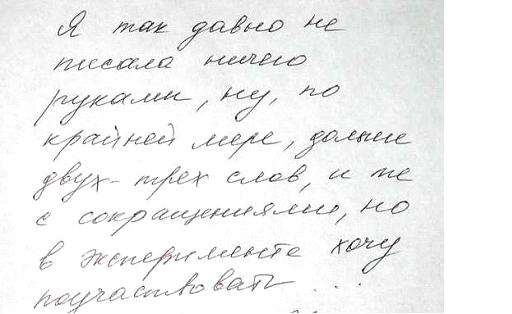 Я так давно не
писала ничего
руками, ну, по
крайней мере, дольше
двух-трех слов, и те
с сокращениями, но
в эксперименте хочу
поучаствовать...